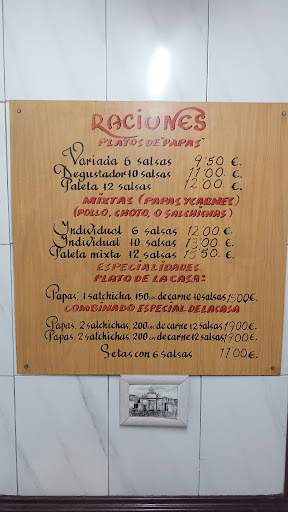 RACIONES
PLATOS DE "PAPAS"
Variada 6 salsas 9'50 €.
Degustador 10 salsas 11'00 €.
Paleta 12 salsas 12'00 €.
MIXTAS (PAPAS Y CARNES)
(POLLO, CHOTO, O SALCHICHAS)
Individual 6 salsas 12'00 €.
Individual 10 salsas 13'00 €.
Paleta mixta 12 salsas 13'50 €.
ESPECIALIDADES
PLATO DE LA CASA:
Papas, 1 salchicha, 150 de carne 10 salsas 15'00€.
COMBINADO ESPECIAL DE LA CASA
Papas, 2 salchichas, 200 de carne 12 salsas 17'00€.
Papas, 2 salchichas, 200 de carne 12 salsas 19'00€.
Setas con 6 salsas 17'00€.